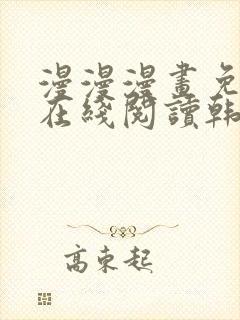 漫漫漫畫免
在綫閱讀韩
高束起